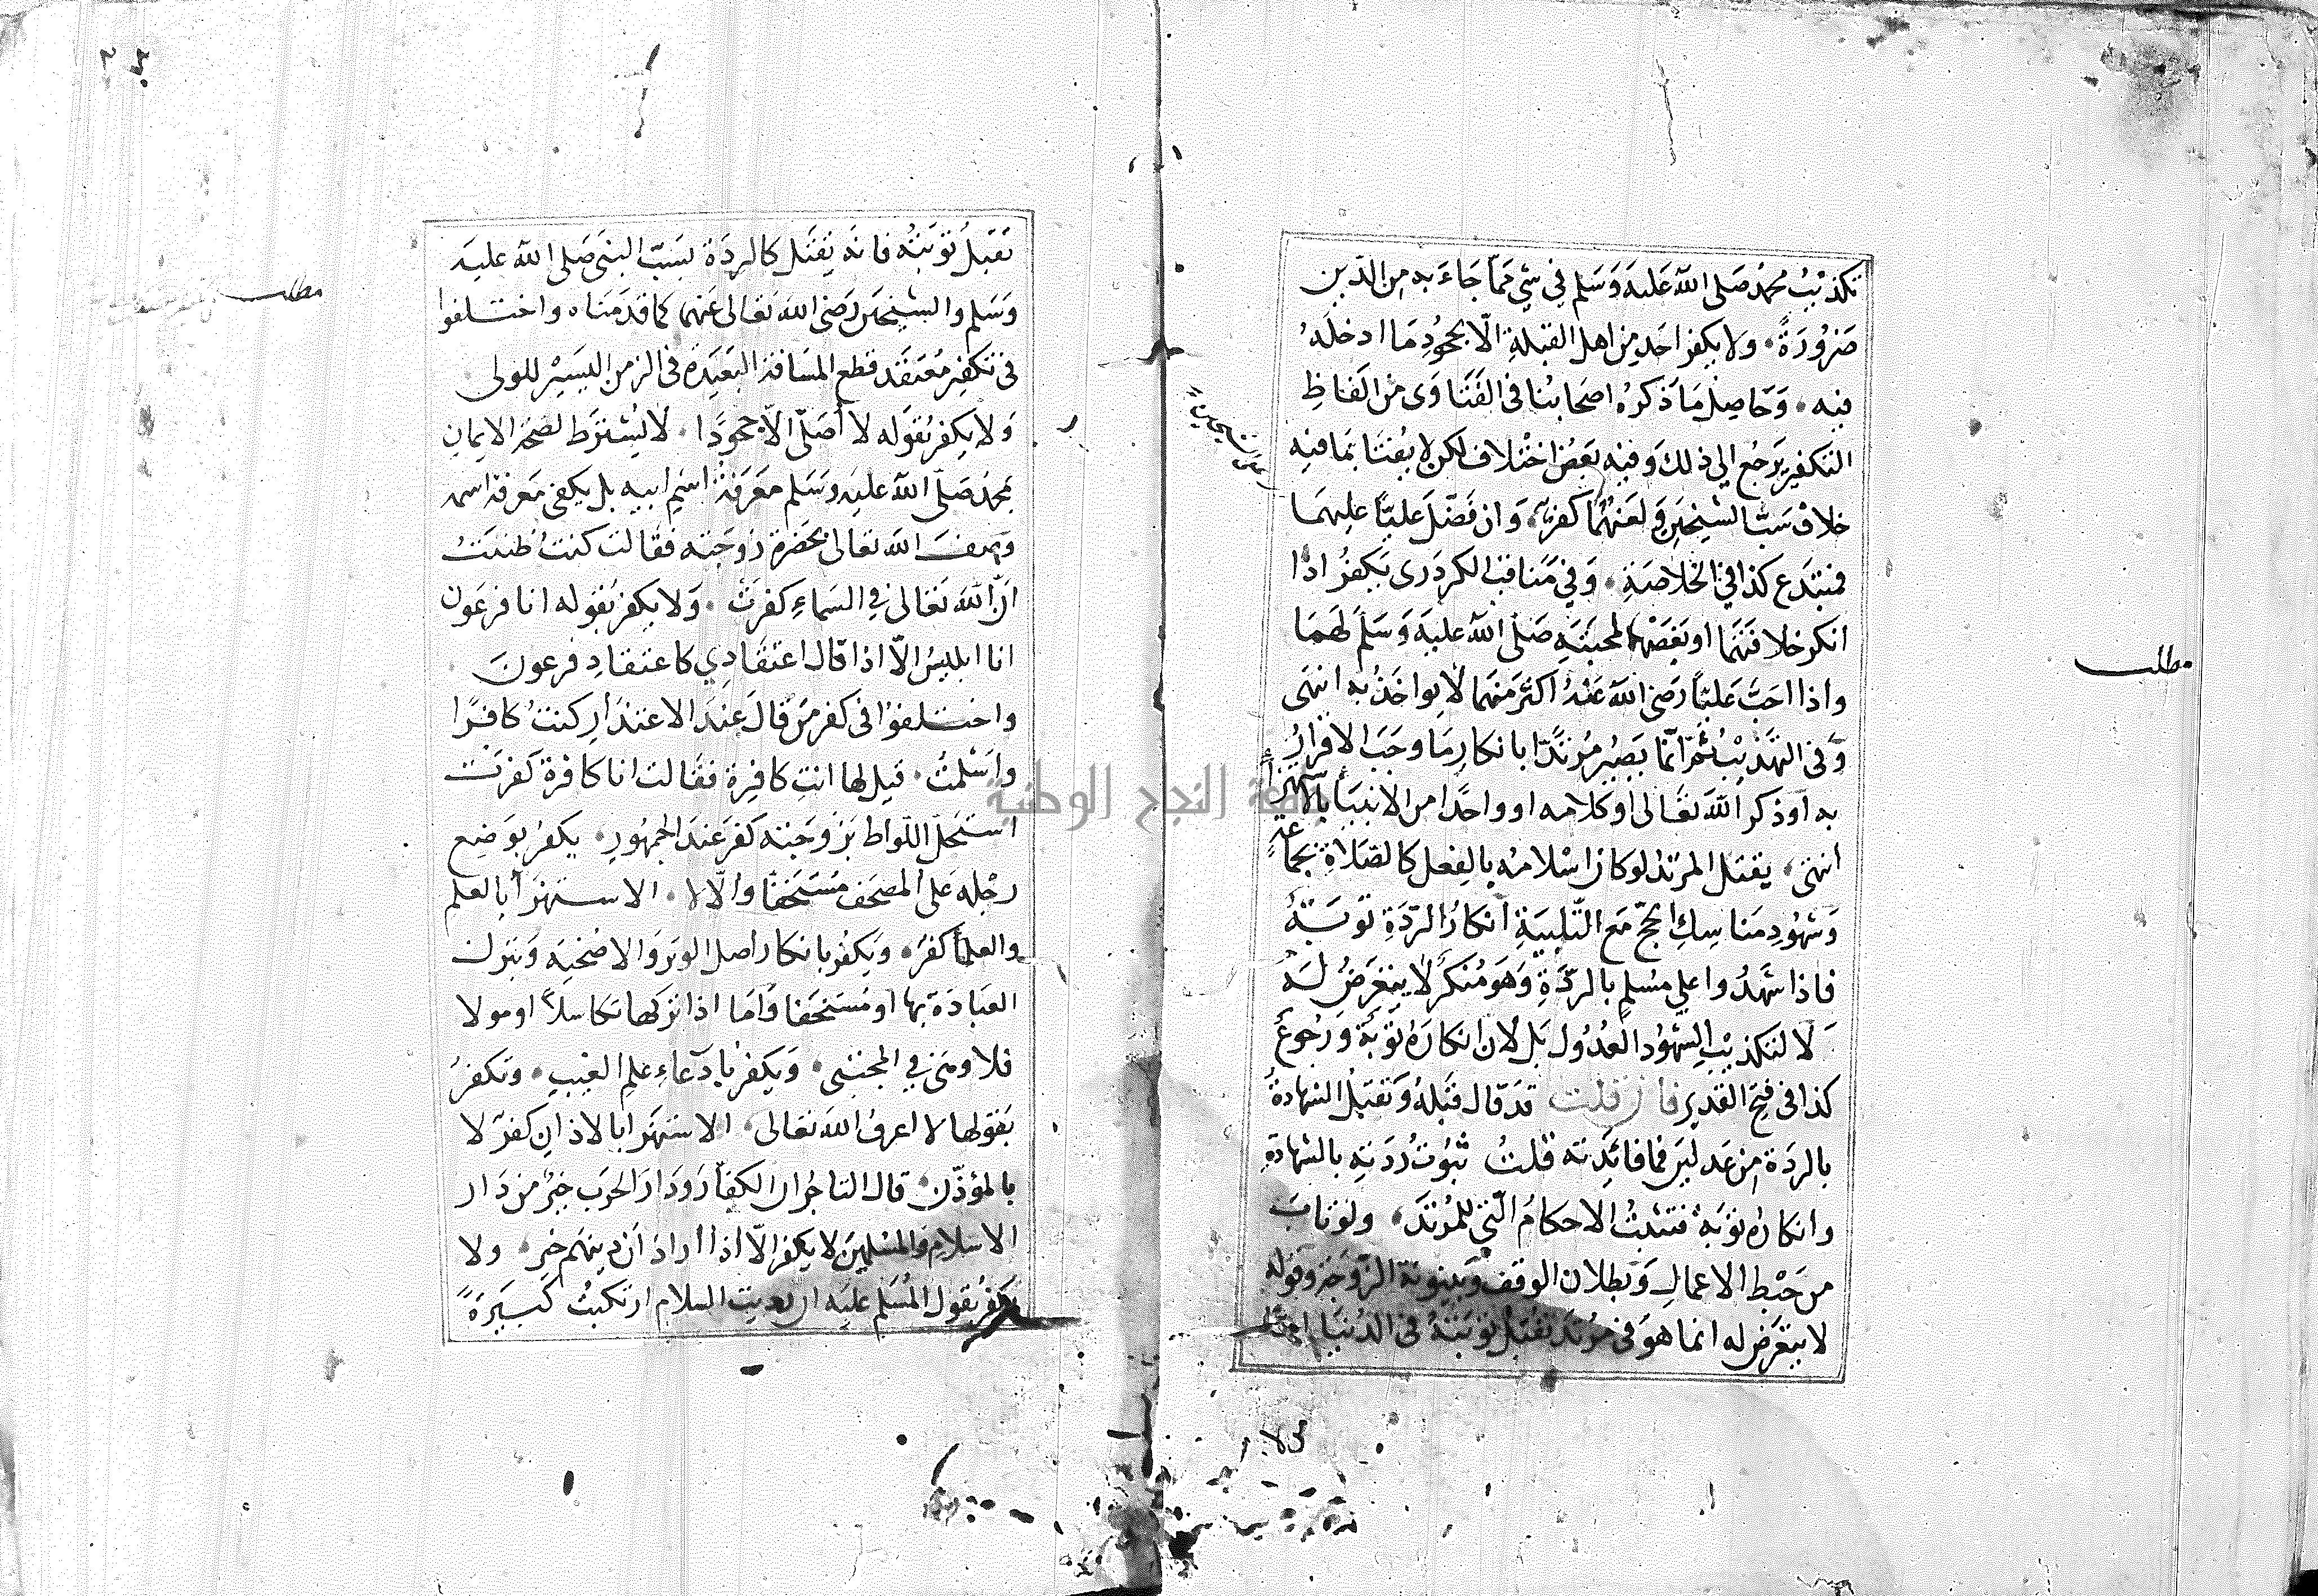 تكذيب محمد صلى الله عليه وسلم في شيء مما جاء به من الدين
ضرورة ولا يكفر احد من اهل القبلة الا بجحود ما ادخله
فيه وحاصل ما ذكره اصحابنا في الفتاوى من الفاظ
التكفير يرجع الى ذلك وفيه بعض اختلاف لكن لا يفتا بما فيه
خلاف سب الشيخين ولعنهما كفر وان فضل عليا عليهما
فمبتدع كذا في الخلاصة وفي مناقب الكردرى يكفر اذا
انكر خلافتهما او بغضهما لمحبته صلى الله عليه وسلم لهما
واذا احب عليا رضى الله عنه اكثر منهما لا يواخذ به انتهى
وفي التهذيب ثم انما يصير مرتدا بانكار ما وجب الاقرار
به او ذكر الله تعالى او كلامه او واحدا من الانبيا بالاستهزأ
انتهى يقتل المرتد لو كان اسلامه بالفعل كالصلاة بجماعة
وشهود مناسك الحج مع التلبية انكار الردة توبة
فاذا شهدوا على مسلم بالردة وهو منكر لا يتعرض له
لا لتكذيب الشهود العدول بل لان انكاره توبة ورجوع
كذا في فتح القدير فان قلت قد قال قبله وتقبل الشهادة
بالردة من عدلين فما فائدته قلت ثبوت ردته بالشهادة
وانكاره توبة فتثبت الاحكام التي للمرتد ولو تاب
من حبط الاعمال وبطلان الوقف وبينونة الزوجة وقوله
لا يتعرض له انما هو في مرتد تقبل توبته في الدنيا
مطلب
تقبل توبته فانه يقتل كالردة بسب النبى صلى الله عليه
وسلم والشيخين رضى الله تعالى عنهما كما قدمناه واختلفوا
في تكفير معتقد قطع المسافة البعيدة في الزمن اليسير للولى
ولا يكفر بقوله لا أصلى الا جحودا لا يشترط لصحة الايمان
بمحمد صلى الله عليه وسلم معرفة اسم ابيه بل يكفى معرفة اسمه
وصف الله تعالى بحضرة زوجته فقالت كنت ظننت
ان الله تعالى في السماء كفرت ولا يكفر بقوله انا فرعون
انا ابليس الا اذا قال اعتقادي كاعتقاد فرعون
واختلفوا في كفر من قال عند الاعتذار كنت كافرا
واسلمت قيل لها انت كافرة فقالت انا كافرة كفرت
استحل اللواط بزوجته كفر عند الجمهور يكفر بوضع
رجله على المصحف مستخفا والا لا الاستهزأ بالعلم
والعلمأ كفر ويكفر بانكار أصل الوتر والاضحية وبترك
العبادة بها او مستخفا واما اذا تركها تكاسلا او مولا
فلا ومن في المجتبى ويكفر بادعاء علم الغيب وتكفر
بقولها لا اعرف الله تعالى الاستهزأ بالاذان كفر لا
بالمؤذن قال التاجر ان الكفار ودار الحرب خير من دار
الاسلام والمسلمين لا يكفر الا اذا اراد ان دينهم خير ولا
يكفر بقول المسلم عليه ارتكبت كبيرة
مطلب
جامعة النجاح الوطنية